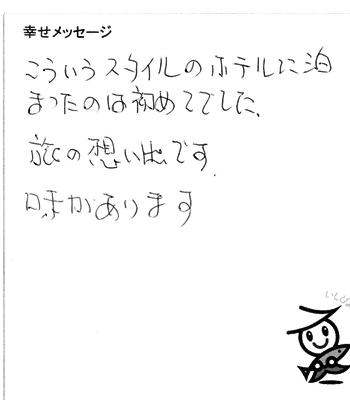 幸せメッセージ
こういうスタイルのホテルに泊
まったのは初めてでした。
旅の想い出です。
味があります